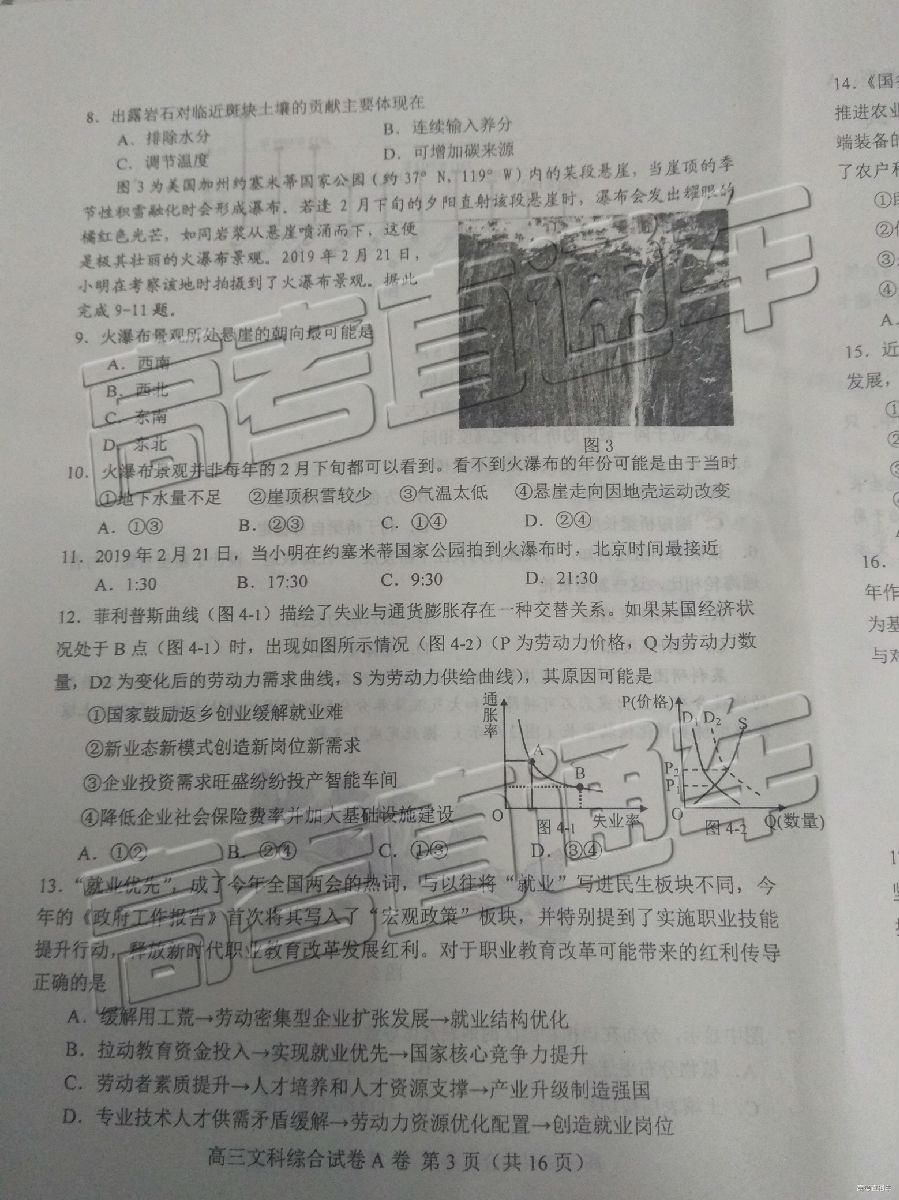 8．出露岩石对临近斑块土壤的贡献主要体现在
A．排除水分 B．连续输入养分
C．调节温度 D．可增加碳来源
图3为美国加州约塞米蒂国家公园（约37°N，119°W）内的某段悬崖，当崖顶的季
节性积雪融化时会形成瀑布．若逢2月下旬的夕阳直射该段悬崖时，瀑布会发出耀眼的
橘红色光芒，如同岩浆从悬崖喷涌而下，这便
是极其壮丽的火瀑布景观。2019年2月21日，
小明在考察该地时拍摄到了火瀑布景观。据此
完成9-11题。
9．火瀑布景观所处悬崖的朝向最可能是
A．西南
B．西北
C．东南
D．东北
图3
10．火瀑布景观并非每年的2月下旬都可以看到。看不到火瀑布的年份可能是由于当时
①地下水量不足 ②崖顶积雪较少 ③气温太低 ④悬崖走向因地壳运动改变
A．①③ B．②③ C．①④ D．②④
11．2019年2月21日，当小明在约塞米蒂国家公园拍到火瀑布时，北京时间最接近
A．1:30 B．17:30 C．9:30 D．21:30
12．菲利普斯曲线（图4-1）描绘了失业与通货膨胀存在一种交替关系。如果某国经济状
况处于B点（图4-1）时，出现如图所示情况（图4-2）（P为劳动力价格，Q为劳动力数
量，D2为变化后的劳动力需求曲线，S为劳动力供给曲线），其原因可能是
①国家鼓励返乡创业缓解就业难
②新业态新模式创造新岗位新需求
③企业投资需求旺盛纷纷投产智能车间
④降低企业社会保险费率并加大基础设施建设
通胀率
A
B
O
图4-1 失业率
P(价格)
D₁ D₂ S
P₂
P₁
O
图4-2 Q(数量)
A．①② B．②④ C．①③ D．③④
13．“就业优先”，成了今年全国两会的热词，与以往将“就业”写进民生板块不同，今
年的《政府工作报告》首次将其写入了“宏观政策”板块，并特别提到了实施职业技能
提升行动，释放新时代职业教育改革发展红利。对于职业教育改革可能带来的红利传导
正确的是
A．缓解用工荒→劳动密集型企业扩张发展→就业结构优化
B．拉动教育资金投入→实现就业优先→国家核心竞争力提升
C．劳动者素质提升→人才培养和人才资源支撑→产业升级制造强国
D．专业技术人才供需矛盾缓解→劳动力资源优化配置→创造就业岗位
高三文科综合试卷A卷 第3页（共16页）
14．《国
推进农业
端装备的
了农户和
①
②
③
④
A．
15．近
发展，
①
②
③
16．
年作
为基
与对
高考直通车
高考直通车